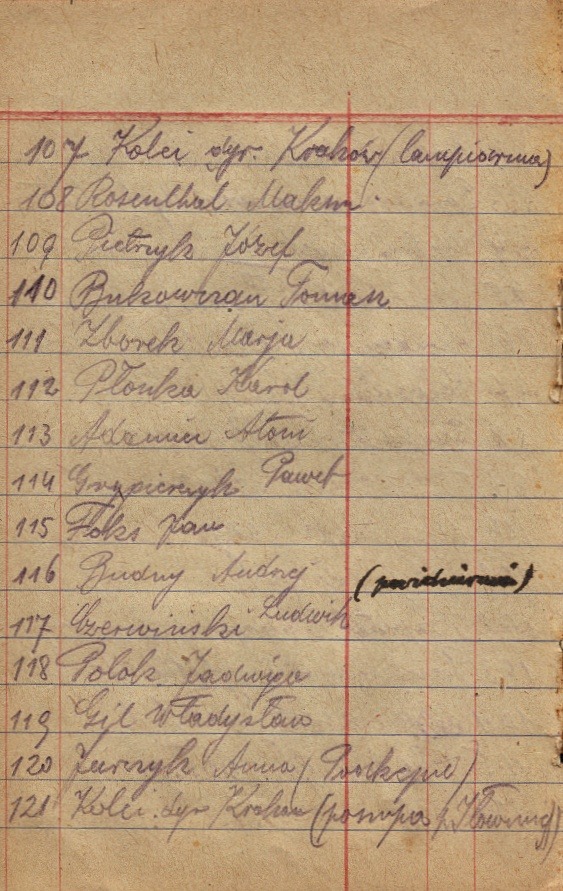 107 Kolei dyr. Kraków (lampiarnia)
108 Rosenthal Maksm
109 Pietrzyk Józef
110 Bukowczan Tomasz
111 Zborek Marja
112 Płonka Karol
113 Adamiec
114 Grypierczyk Paweł
115 Foks Jan
116 Budny Andrzej
117 Czerwiński Ludwik
118 Polok Jadwiga
119 Gil Władysław
120 Jurczyk Anna
121 Kolei dyr Kraków